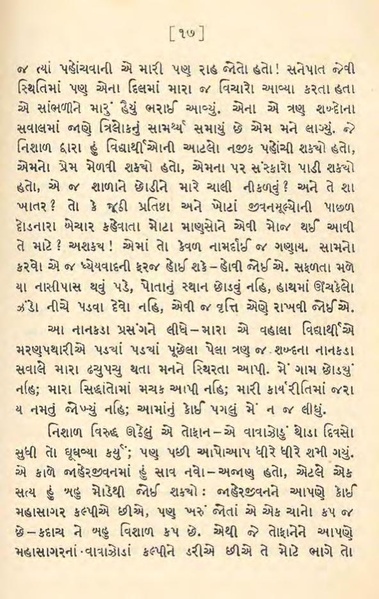 [ ૧૭ ]
જ ત્યાં પહોંચવાની એ મારી પણ રાહ જોતો હતો! સનેપાત જેવી
સ્થિતિમાં પણ એના દિલમાં મારા જ વિચારો આવ્યા કરતા હતા
એ સાંભળીને મારું હૈયું ભરાઈ આવ્યું. એના એ ત્રણ શબ્દોના
સવાલમાં જાણે ત્રિલોકનું સામર્થ્ય સમાયું છે એમ મને લાગ્યું. જે
નિશાળ દ્વારા હું વિદ્યાર્થીઓની આટલો નજીક પહોંચી શક્યો હતો,
એમનો પ્રેમ મેળવી શક્યો હતો, એમના પર સંસ્કારો પાડી શક્યો
હતો, એ જ શાળાને છોડીને મારે ચાલી નીકળવું? અને તે શા
ખાતર? તો કે જૂઠી પ્રતિષ્ઠા અને ખોટાં જીવનમૂલ્યોની પાછળ
દોડનારા બેચાર કહેવાતા મોટા માણસોને એવી મોજ થઈ આવી
તે માટે? અશક્ય! એમાં તો કેવળ નામર્દાઈ જ ગણાય. સામનો
કરવો એ જ ધ્યેયવાદની ફરજ હોઈ શકે–હોવી જોઈએ. સફળતા મળે
યા નાસીપાસ થવું પડે, પોતાનું સ્થાન છોડવું નહિ, હાથમાં ઊંચકેલો
ઝંડો નીચે પડવા દેવો નહિ, એવી જ વૃત્તિ એણે રાખવી જોઈએ.
આ નાનકડા પ્રસંગને લીધે–મારા એ વહાલા વિદ્યાર્થીએ
મરણપથારીએ પડ્યાં પડ્યાં પૂછેલા પેલા ત્રણ જ શબ્દના નાનકડા
સવાલે મારા ઢચુપચુ થતા મનને સ્થિરતા આપી. મેં ગામ છોડ્યું
નહિ; મારા સિદ્ધાંતોમાં મચક આપી નહિ; મારી કાર્યરીતિમાં જરા
ય નમતું જોખ્યું નહિ; આમાંનું કોઈ પગલું મેં ન જ લીધું.
નિશાળ વિરુદ્ધ ઊઠેલું એ તોફાન–એ વાવાઝોડું થોડા દિવસો
સુધી તો ઘૂઘવ્યા કર્યું; પણ પછી આપોઆપ ધીરે ધીરે શમી ગયું.
એ કાળે જાહેરજીવનમાં હું સાવ નવો–અજાણ હતો, એટલે એક
સત્ય હું બહુ મોડેથી જોઈ શક્યો: જાહેરજીવનને આપણે કોઈ
મહાસાગર કલ્પીએ છીએ, પણ ખરું જોતાં એ એક ચાનો કપ જ
છે–કદાચ ને બહુ વિશાળ કપ છે. એથી જે તોફાનોને આપણે
મહાસાગરનાં વાવાઝોડાં કલ્પીને ડરીએ છીએ તે મોટે ભાગે તો